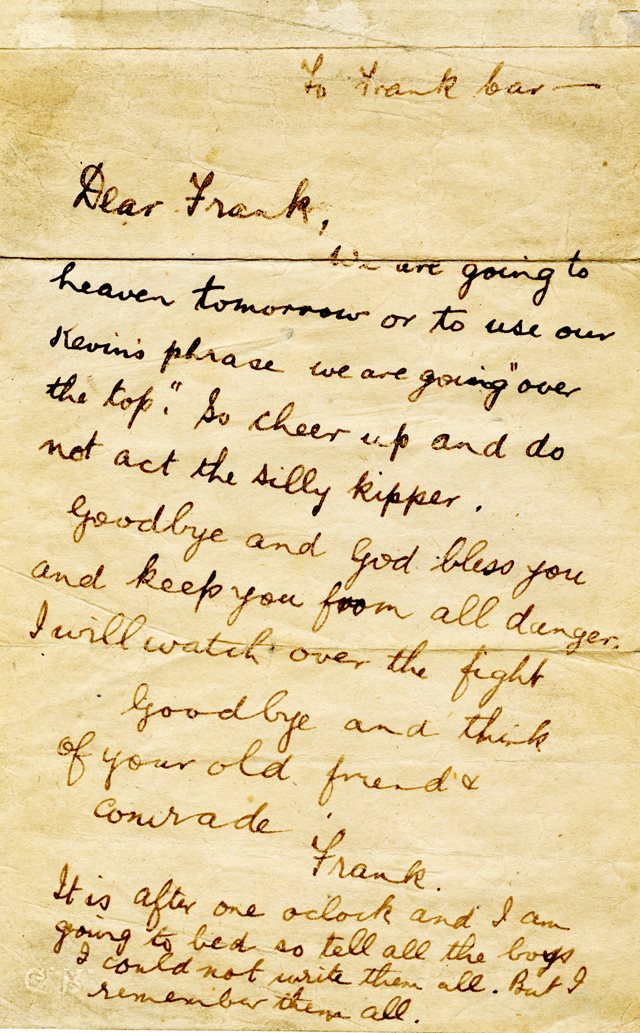 To Frank bar—
Dear Frank,
We are going to
heaven tomorrow or to use our
Kevin's phrase we are going "over
the top." So cheer up and do
not act the silly kipper.
Goodbye and God bless you
and keep you from all danger.
I will watch over the fight
Goodbye and think
of your old friend &
comrade
Frank.
It is after one oclock and I am
going to bed so tell all the boys
I could not write them all. But I
remember them all.